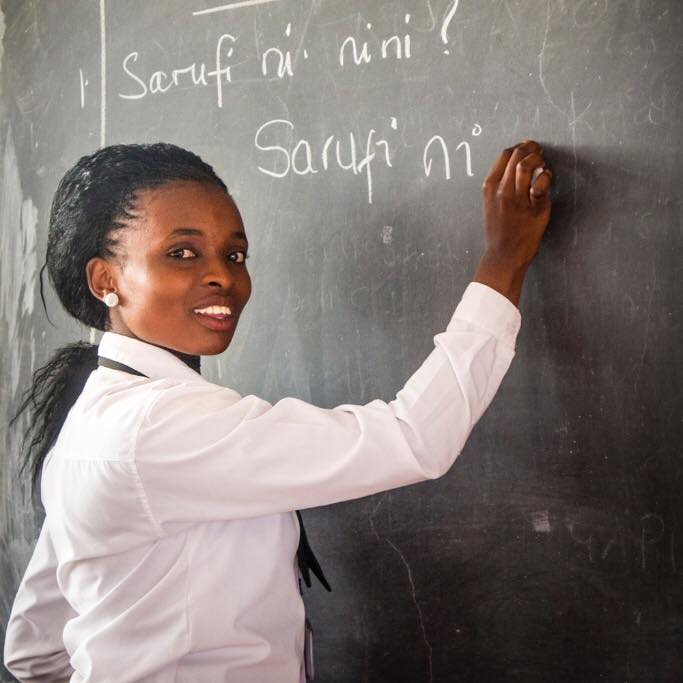 1. Sarufi ni nini?
Sarufi ni